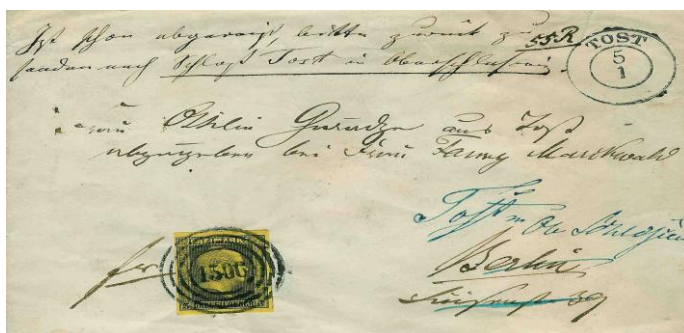 Ist schon abgereist, bitte zurück zu
senden nach Schloß Tost in Oberschlesien.
55R
TOST
5
1
Frau Guradze aus Tost
abzugeben bei Frau Fanny Marckwald
Tost in Ob Schlesien
Berlin
39
fr
1500